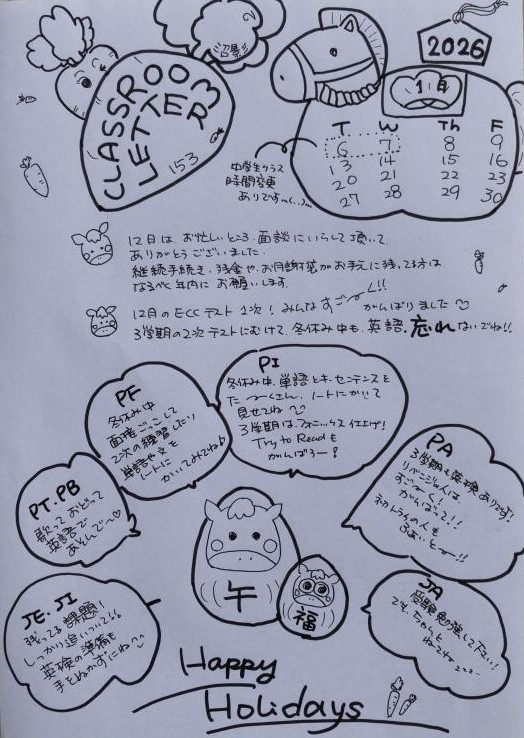 CLASSROOM
LETTER
153
2026
1月
T W Th F
6 7 8 9
13 14 15 16
20 21 22 23
27 28 29 30
中学生クラス
時間変更
ありですっ(...)...
12月は お忙しいところ 面談にいらして頂いて
ありがとうございました.
継続手続き、残金やお月謝袋がお手元に残ってる方は
なるべく年内に お願いします
12月のECCテスト1次! みんなすご〜く!! がんばりました
3学期の2次テストにむけて、冬休み中も、英語、忘れないでね!!
PF
冬休み中
面接ごっこして
2次の練習したり
単語や文を
ノートに
かいてみてね
PI
冬休み中、単語とキーセンテンスを
た〜くさん、ノートにかいて
見せてね
3学期はフォニックス仕上げ!
Try to Readも
がんばろー!
PT.PB
歌って おどって
英語で
あそんで〜
PA
3学期も英検ありです!
リベンジ人は
すご〜く!
がんばって!!
初トライの人も
ふぁいと〜!!
JE.JI
残ってる課題!
しっかり追いついて
英検の準備も
手をぬかずにね
JA
受験勉強して下さい!
でも、ちゃんと
ねてネ
午
福
Happy
Holidays